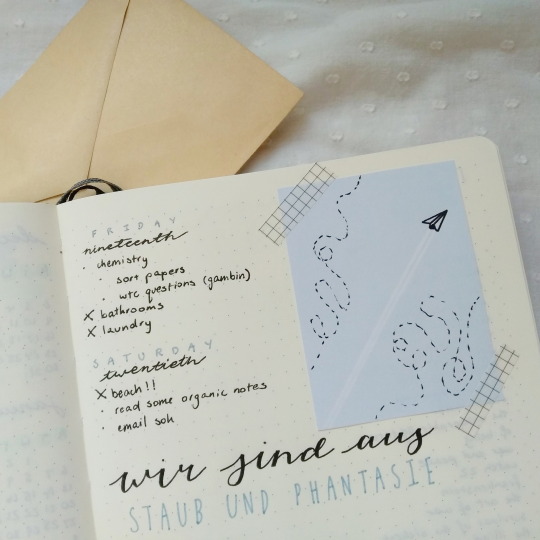 FRIDAY
nineteenth
· chemistry
· sort papers
· wtc questions (gambin)
X bathrooms
X laundry
SATURDAY
twentieth
X beach!!
· read some organic notes
· email soh
wir sind aus
STAUB UND PHANTASIE